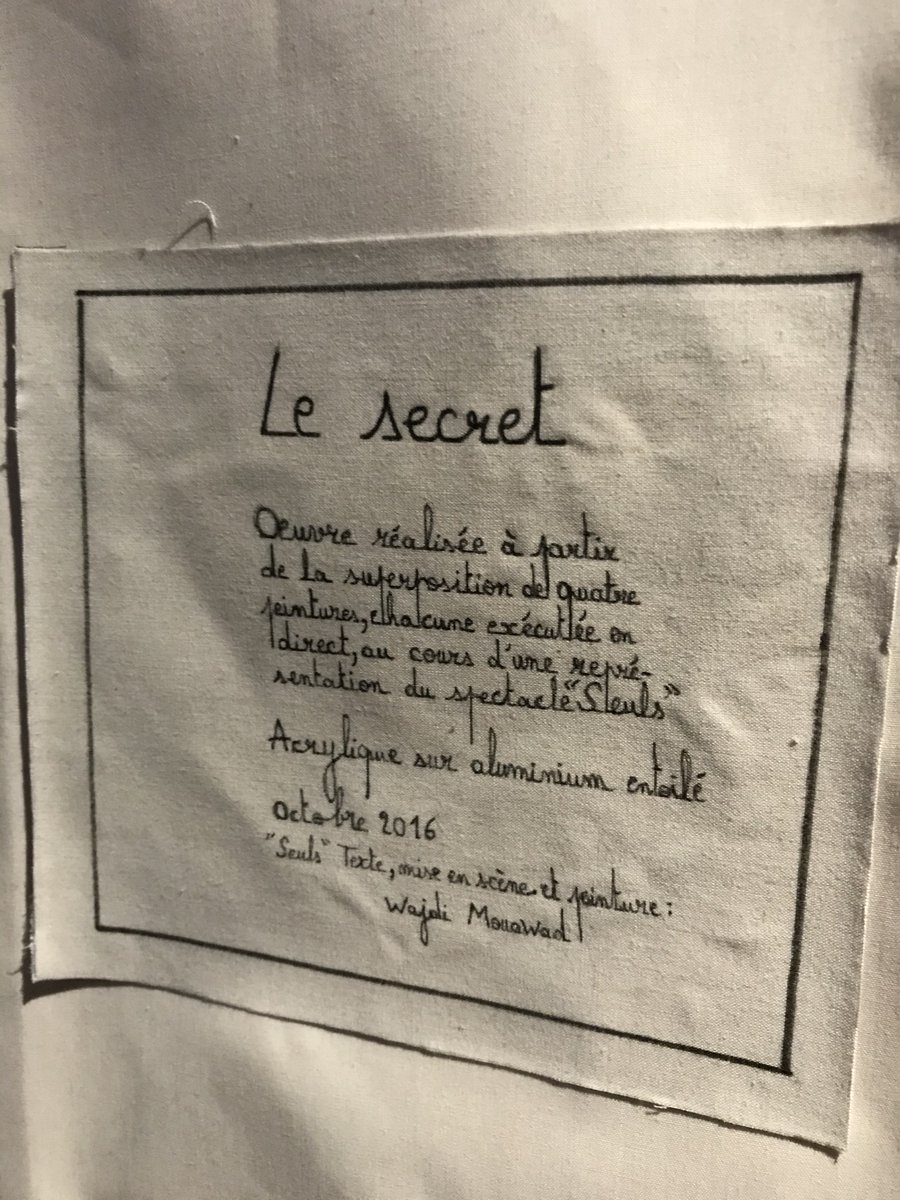 Le secret
Oeuvre réalisée à partir
de la superposition de quatre
peintures, chacune exécutée en
direct, au cours d'une repré-
sentation du spectacle "Seuls"
Acrylique sur aluminium entoilé
Octobre 2016
"Seuls" Texte, mise en scène et peinture :
Wajdi Mouawad